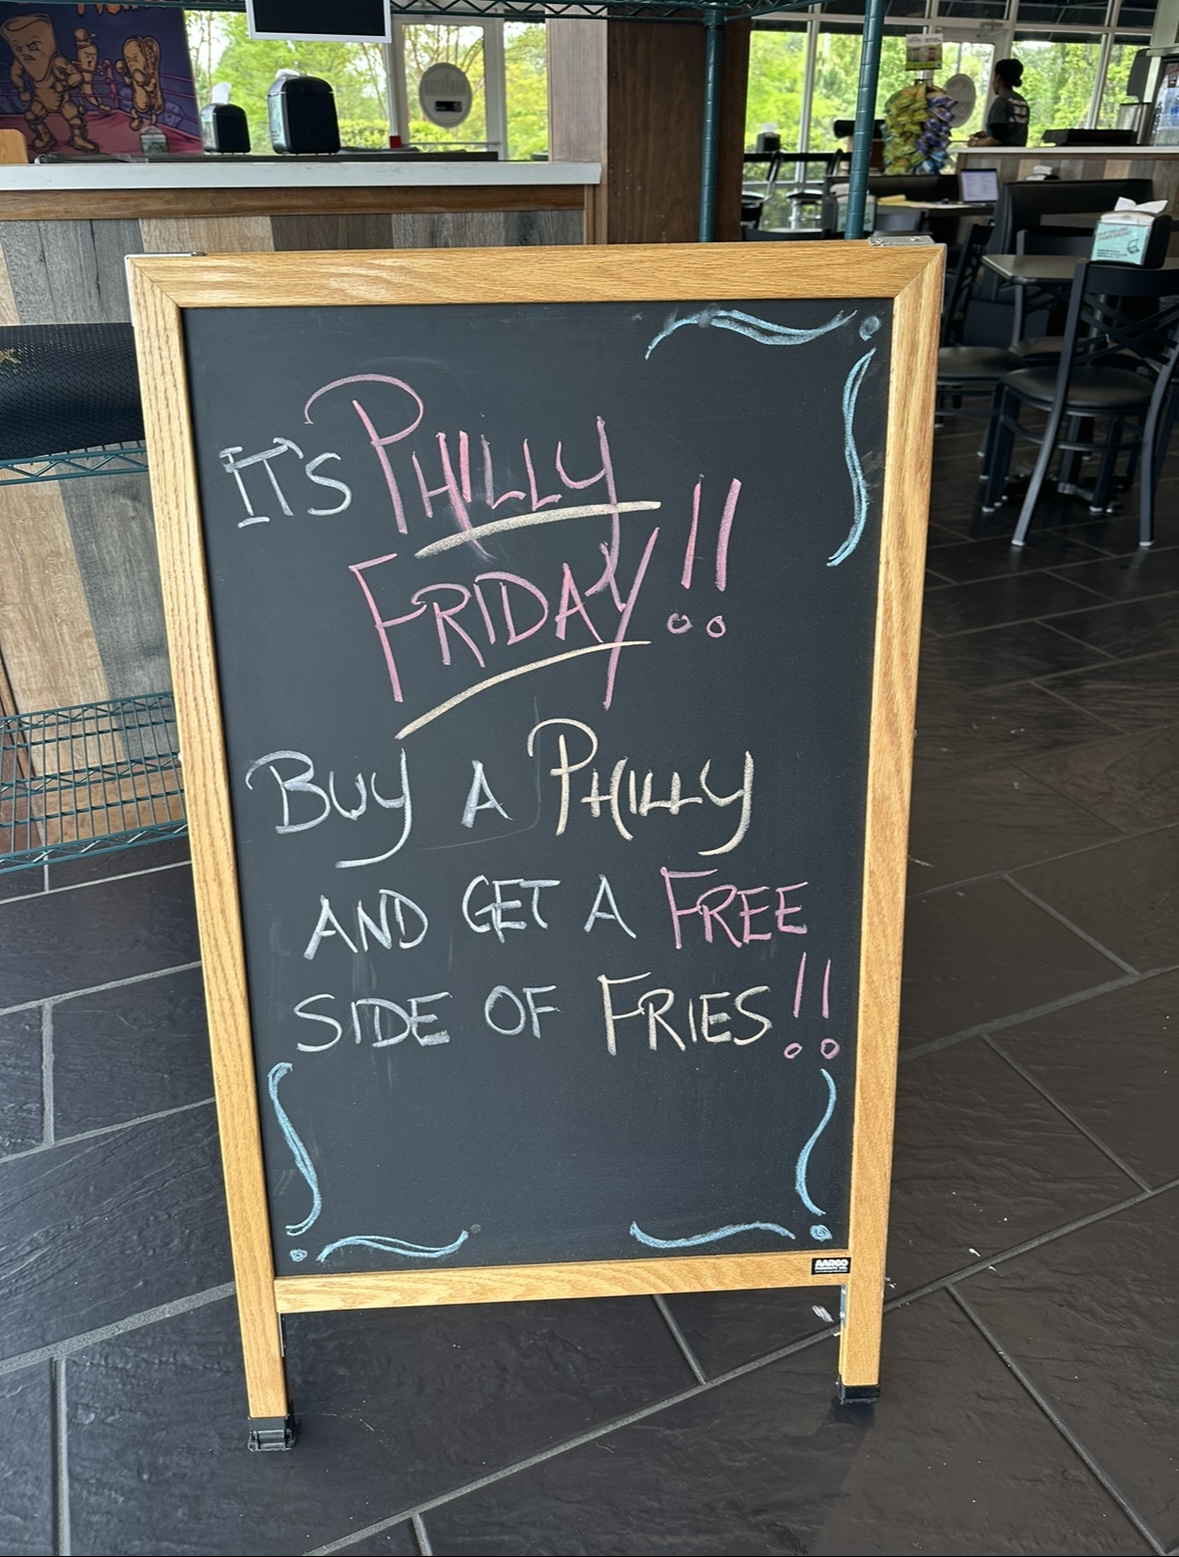 IT'S PHILLY
FRIDAY!!
BUY A PHILLY
AND GET A FREE
SIDE OF FRIES!!
AARCO